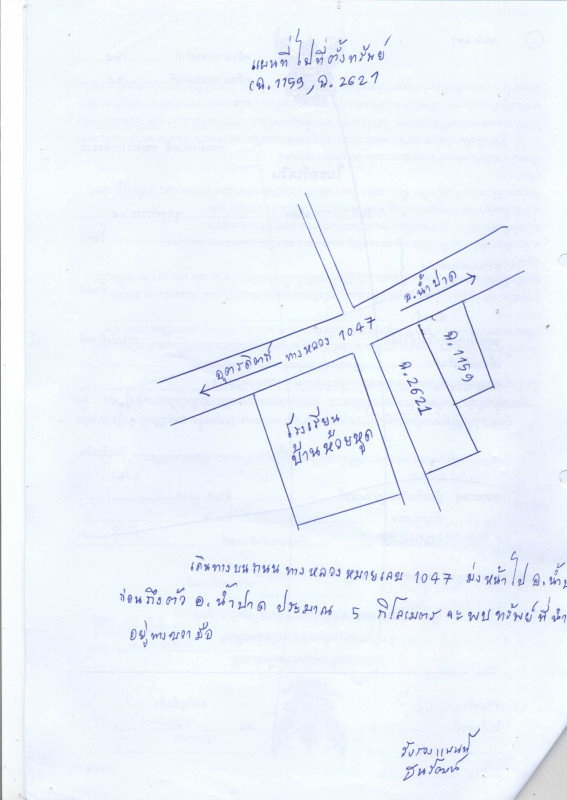 แผนที่ไปที่ตั้งทรัพย์
ฉ.1159, ฉ.2621
อ.น้ำปาด
อุตรดิตถ์ ทางหลวง 1047
ฉ.1159
ฉ.2621
โรงเรียน
บ้านห้วยหูด
เดินทางบนถนน ทางหลวงหมายเลข 1047 มุ่งหน้าไป อ.น้ำป
ก่อนถึงตัว อ.น้ำปาด ประมาณ 5 กิโลเมตร จะพบทรัพย์ที่นำ
อยู่ทางขวามือ
รับรองแผนที่